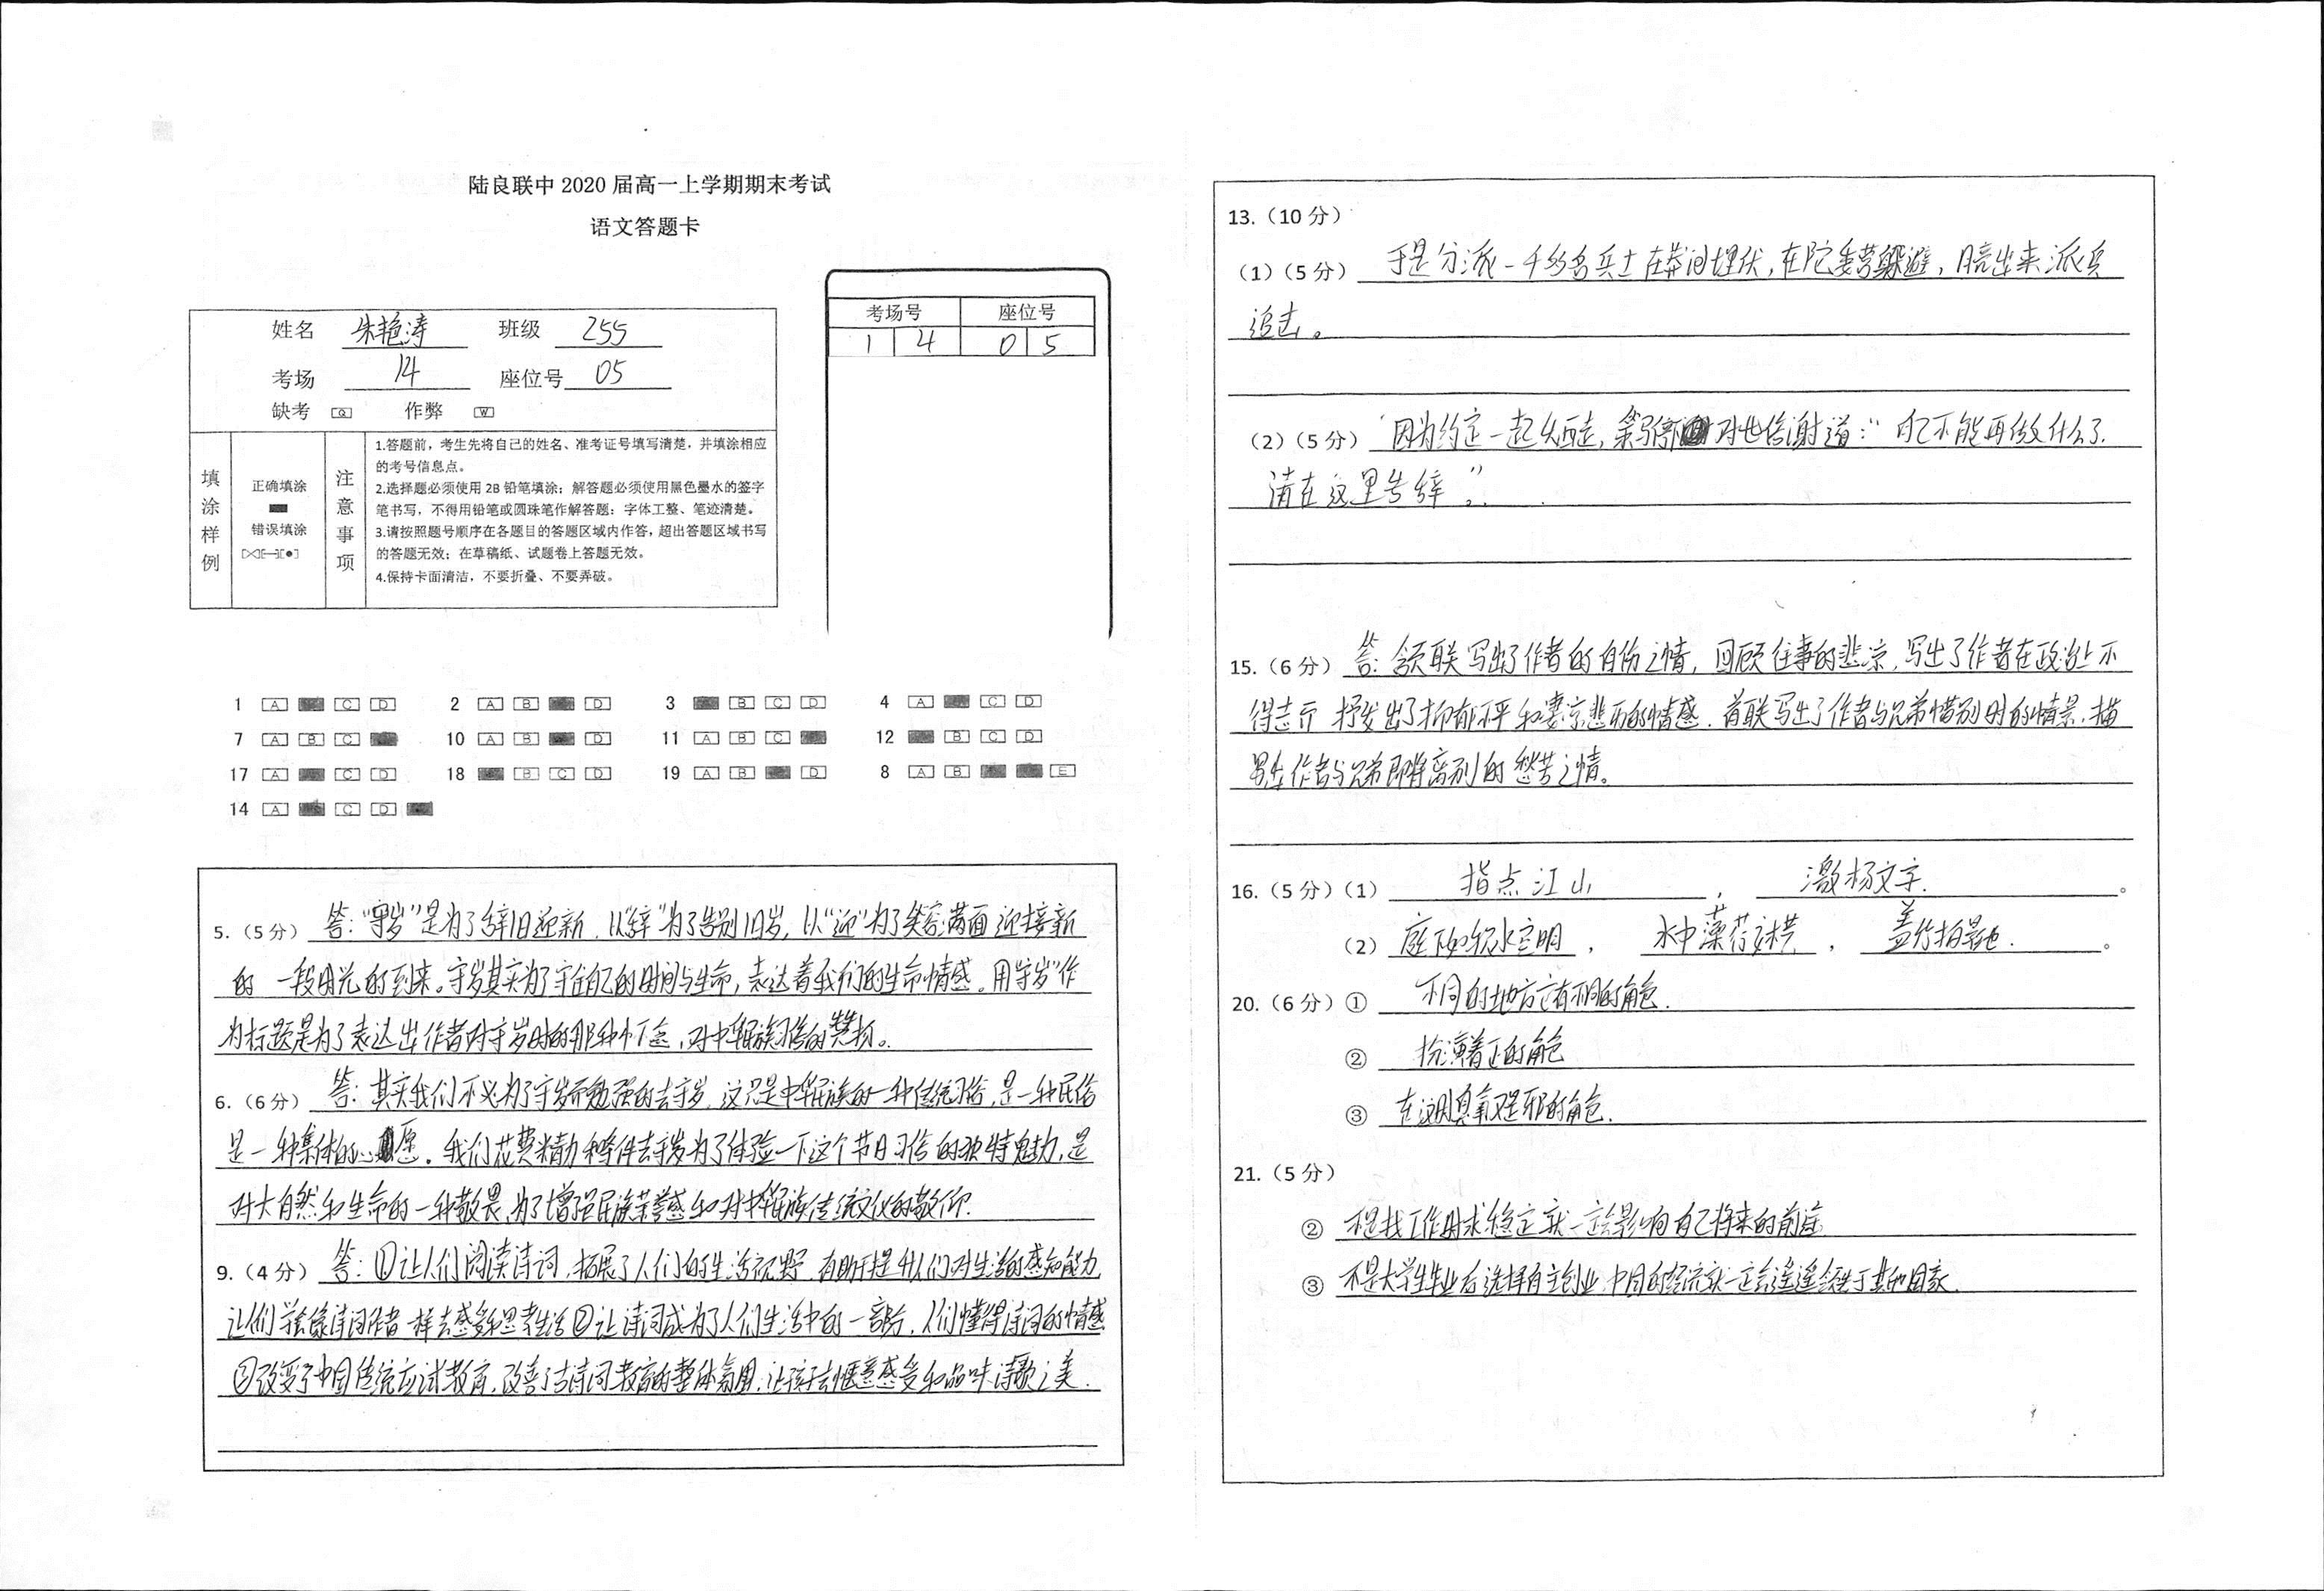 陆良联中 2020 届高一上学期期末考试
语文答题卡
姓名 朱艳涛 班级 255
考场 14 座位号 05
缺考 [Q] 作弊 [W]
考场号 座位号
1 4 0 5
填涂样例
正确填涂
错误填涂
注意事项
1.答题前,考生先将自己的姓名、准考证号填写清楚,并填涂相应
的考号信息点。
2.选择题必须使用 2B 铅笔填涂;解答题必须使用黑色墨水的签字
笔书写,不得用铅笔或圆珠笔作解答题;字体工整、笔迹清楚。
3.请按照题号顺序在各题目的答题区域内作答,超出答题区域书写
的答题无效;在草稿纸、试题卷上答题无效。
4.保持卡面清洁,不要折叠、不要弄破。
1 A C D 2 A B D 3 B C D 4 A C D
7 A B C 10 A B D 11 A B C 12 B C D
17 A C D 18 B C D 19 A B D 8 A B E
14 A C D
5.(5 分) 答:“守岁”是为了辞旧迎新,以“辞”为了告别旧岁,以“迎”为了笑容满面迎接新
的一段时光的到来。守岁其实为了守住自己的时间与生命,表达着我们的生命情感。用“守岁”作
为标题是为了表达出作者对守岁时的那种心态,对中华民族习俗的赞扬。
6.(6 分) 答:其实我们不必为了守岁而勉强的去守岁,这只是中华民族的一种传统习俗,是一种民俗
是一种集体的心愿。我们花费精力和条件去守岁为了体验一下这个节日习俗的独特魅力,是
对大自然和生命的一种敬畏,为了增强民族荣誉感和对中华民族传统文化的敬仰.
9.(4 分) 答:①让人们阅读诗词,拓展了人们的生活视野,有助于提升人们对生活的感知能力,
让人们学会像诗词作者一样去感受和思考生活②让诗词成为了人们生活中的一部分,人们懂得诗词的情感
③改变了中国传统应试教育,改善了古诗词教育的整体氛围,让孩子去惬意感受和品味诗歌之美.
13.(10 分)
(1)(5 分) 于是分派一千多名兵士在莽间埋伏,在陀委营躲避,月亮出来派兵
追击。
(2)(5 分) “因为约定一起外走,第写停对世信谢道:“自己不能再做什么了.
请在这里告辞。”
15.(6 分) 答:颔联写出了作者的自伤之情,回顾往事的悲凉,写出了作者在政治上不
得志而抒发出了抑郁不平和凄凉悲历的情感.首联写出了作者与兄弟惜别时的情景,描
写出作者与兄弟即将离别的愁苦之情。
16.(5 分)(1) 指点江山 , 激扬文字. 。
(2) 庭下如积水空明 , 水中藻荇交横 , 盖竹柏影也. 。
20.(6 分)① 不同的地方它有不同的角色.
② 扮演着正的角色
③ 在这则臭氧又是邪的角色.
21.(5 分)
② 不是找工作时求稳定就一定会影响自己将来的前途
③ 不是大学生毕业后选择自主创业,中国的经济就一定会遥遥领先于其他国家.